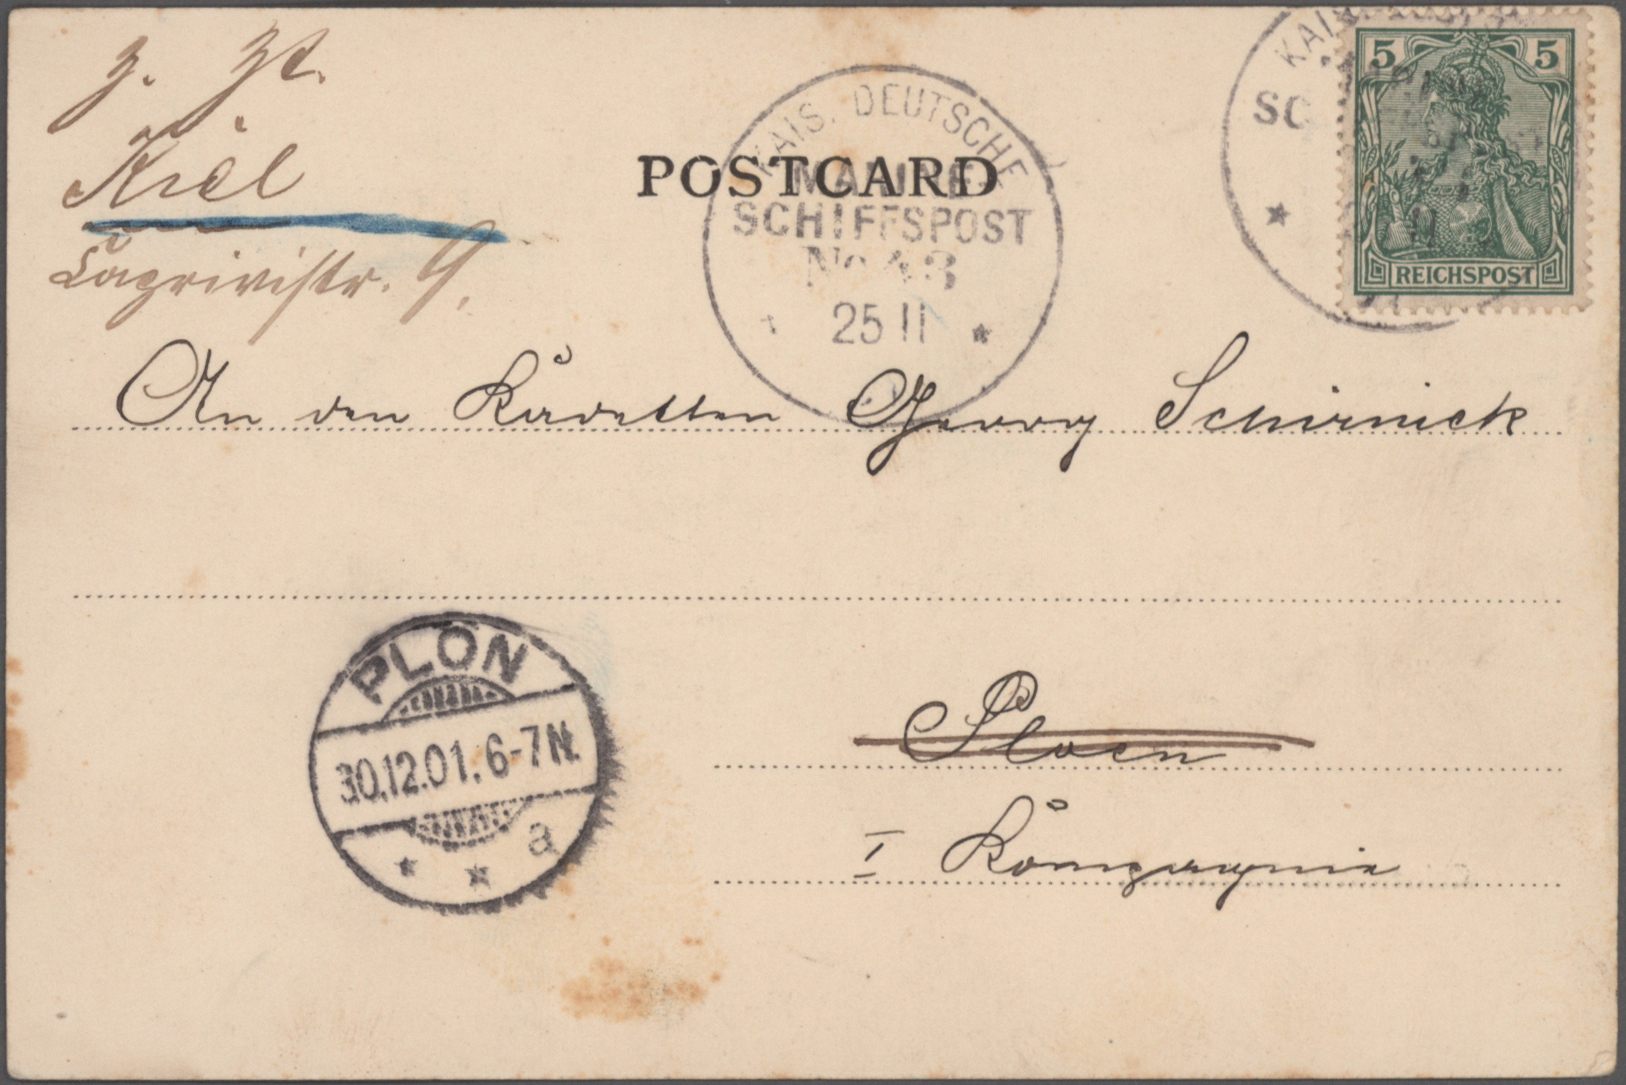 z. Zt.
Kiel
Caprivistr. 9.
POSTCARD
KAIS. DEUTSCHE
MARINE-
SCHIFFSPOST
No 43
25 11
KAIS.
SC
5 5
REICHSPOST
An den Kadetten Georg Schirnick
PLÖN
30.12.01. 6-7N.
a
Ploen
I Kompagnie